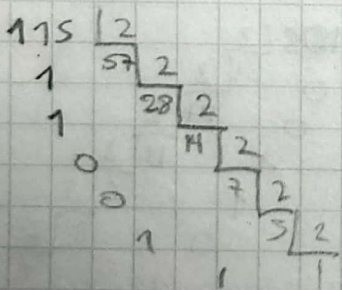 115 2
1 57 2
1 28 2
0 14 2
0 7 2
1 3 2
1 1